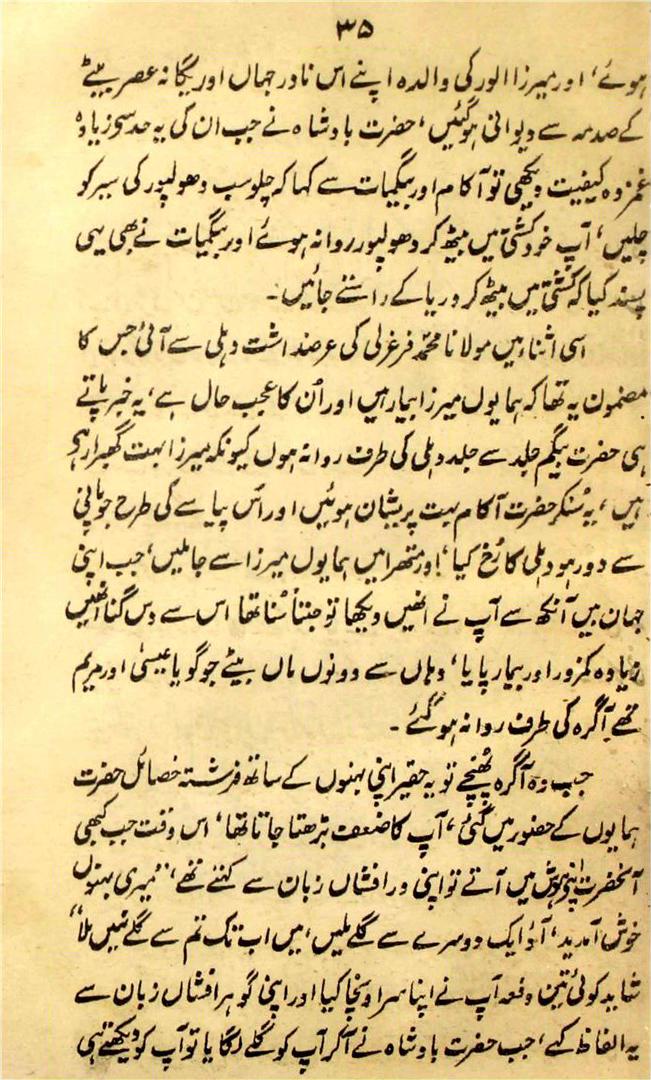 ۳۵
ہوئے‘ اور میرزا الور کی والدہ اپنے اس نادر جہاں اور یگانہ عصر بیٹے
کے صدمہ سے دیوانی ہوگئیں‘ حضرت بادشاہ نے جب ان کی یہ حد سے زیادہ
غمزدہ کیفیت دیکھی تو آکام اور بیگمات سے کہا کہ چلو سب دھولپور کی سیر کو
چلیں‘ آپ خود کشتی میں بیٹھ کر دھولپور روانہ ہوئے اور بیگمات نے بھی یہی
پسند کیا کہ کشتی میں بیٹھ کر دریا کے راستے جائیں۔
اسی اثناء میں مولانا محمد فرغری کی عرضداشت دہلی سے آئی جس کا
مضمون یہ تھا کہ ہمایوں میرزا بیمار ہیں اور اُن کا عجب حال ہے‘ یہ خبر پاتے
ہی حضرت بیگم جلد سے جلد دہلی کی طرف روانہ ہوں کیونکہ میرزا بہت گھبرا رہے
ہیں‘ یہ سُنکر حضرت آکام بہت پریشان ہوئیں اور اُس پیاسے کی طرح جو پانی
سے دور ہو دہلی کا رُخ کیا‘ اور متھرا میں ہمایوں میرزا سے جا ملیں‘ جب اپنی
جہان بیں آنکھ سے آپ نے انھیں دیکھا تو جتنا سُنا تھا اس سے دس گنا انھیں
زیادہ کمزور اور بیمار پایا‘ وہاں سے دونوں ماں بیٹے جو گویا عیسیٰ اور مریم
تھے آگرہ کی طرف روانہ ہو گئے۔
جب وہ آگرہ پہنچے تو یہ حقیر اپنی بہنوں کے ساتھ فرشتہ خصائل حضرت
ہمایوں کے حضور میں گئی‘ آپ کا ضعف بڑھتا جاتا تھا‘ اس وقت جب کبھی
آنحضرت اپنی ہوش میں آتے تو اپنی در افشاں زبان سے کہتے تھے‘ ”میری بہنوں
خوش آمدید‘ آؤ ایک دوسرے سے گلے ملیں‘ میں اب تک تم سے گلے نہیں ملا“
شاید کوئی تین دفعہ آپ نے اپنا سر اونچا کیا اور اپنی گوہر افشاں زبان سے
یہ الفاظ کہے‘ جب حضرت بادشاہ نے آکر آپ کو گلے لگایا تو آپ کو دیکھتے ہی